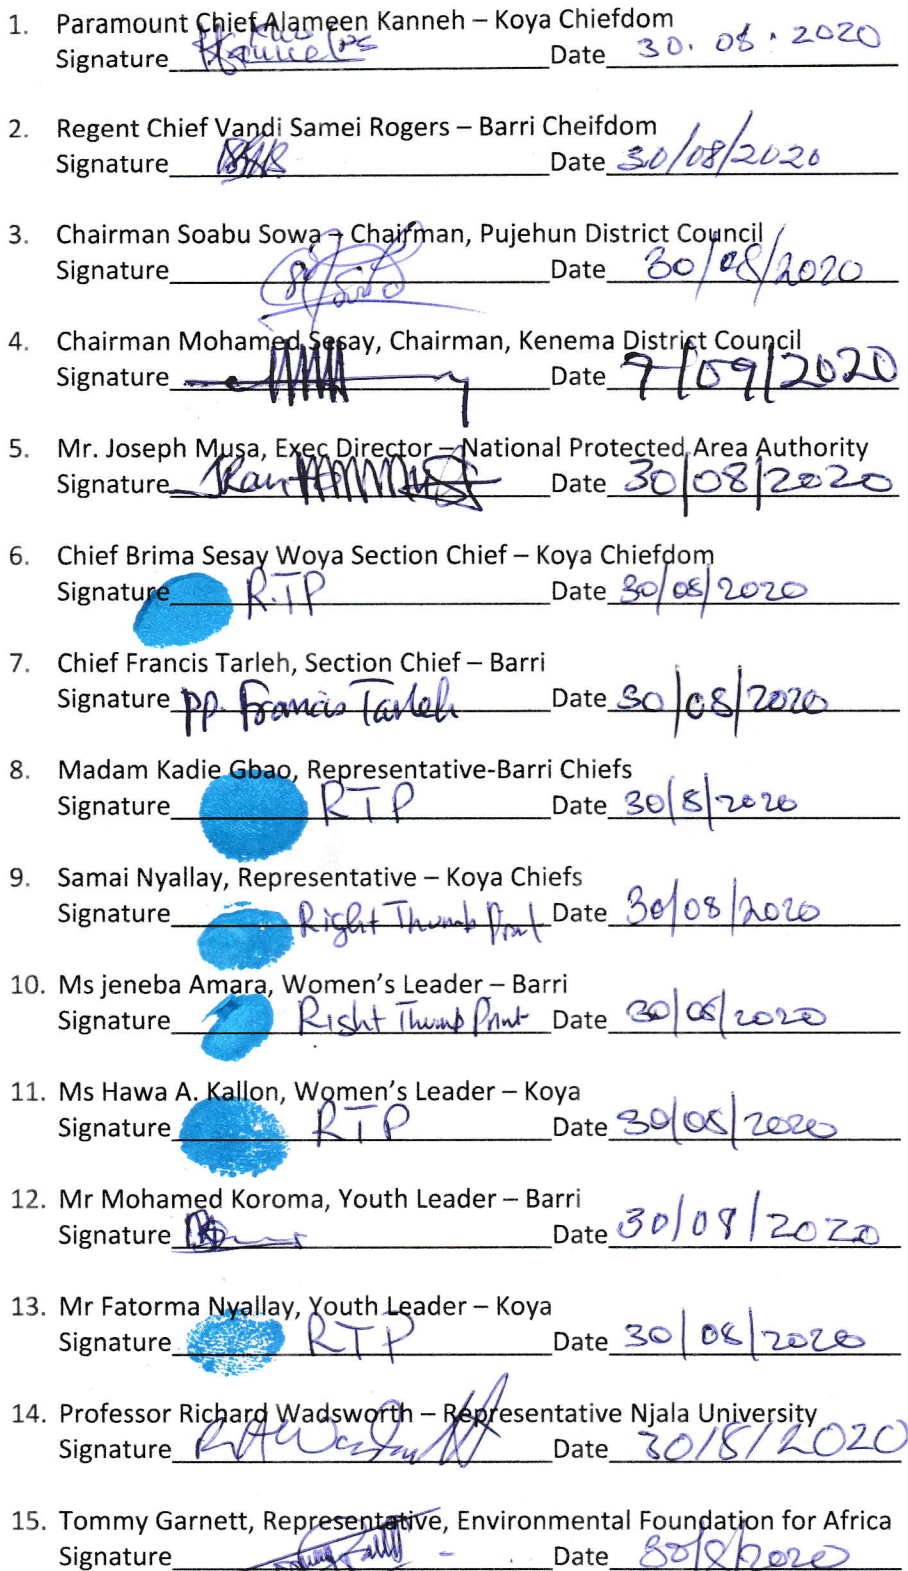 1. Paramount Chief Alameen Kanneh – Koya Chiefdom
Signature Date 30.08.2020
2. Regent Chief Vandi Samei Rogers – Barri Cheifdom
Signature Date 30/08/2020
3. Chairman Soabu Sowa – Chairman, Pujehun District Council
Signature Date 30/08/2020
4. Chairman Mohamed Sesay, Chairman, Kenema District Council
Signature Date 7/09/2020
5. Mr. Joseph Musa, Exec Director – National Protected Area Authority
Signature Date 30/08/2020
6. Chief Brima Sesay Woya Section Chief – Koya Chiefdom
Signature R.TP Date 30/08/2020
7. Chief Francis Tarleh, Section Chief – Barri
Signature pp. Francis Tarleh Date 30/08/2020
8. Madam Kadie Gbao, Representative-Barri Chiefs
Signature RTP Date 30/8/2020
9. Samai Nyallay, Representative – Koya Chiefs
Signature Right Thumb Print Date 30/08/2020
10. Ms jeneba Amara, Women's Leader – Barri
Signature Right Thumb Print Date 30/08/2020
11. Ms Hawa A. Kallon, Women's Leader – Koya
Signature RTP Date 30/08/2020
12. Mr Mohamed Koroma, Youth Leader – Barri
Signature Date 30/08/2020
13. Mr Fatorma Nyallay, Youth Leader – Koya
Signature RTP Date 30/08/2020
14. Professor Richard Wadsworth – Representative Njala University
Signature Date 30/8/2020
15. Tommy Garnett, Representative, Environmental Foundation for Africa
Signature Date 30/8/2020